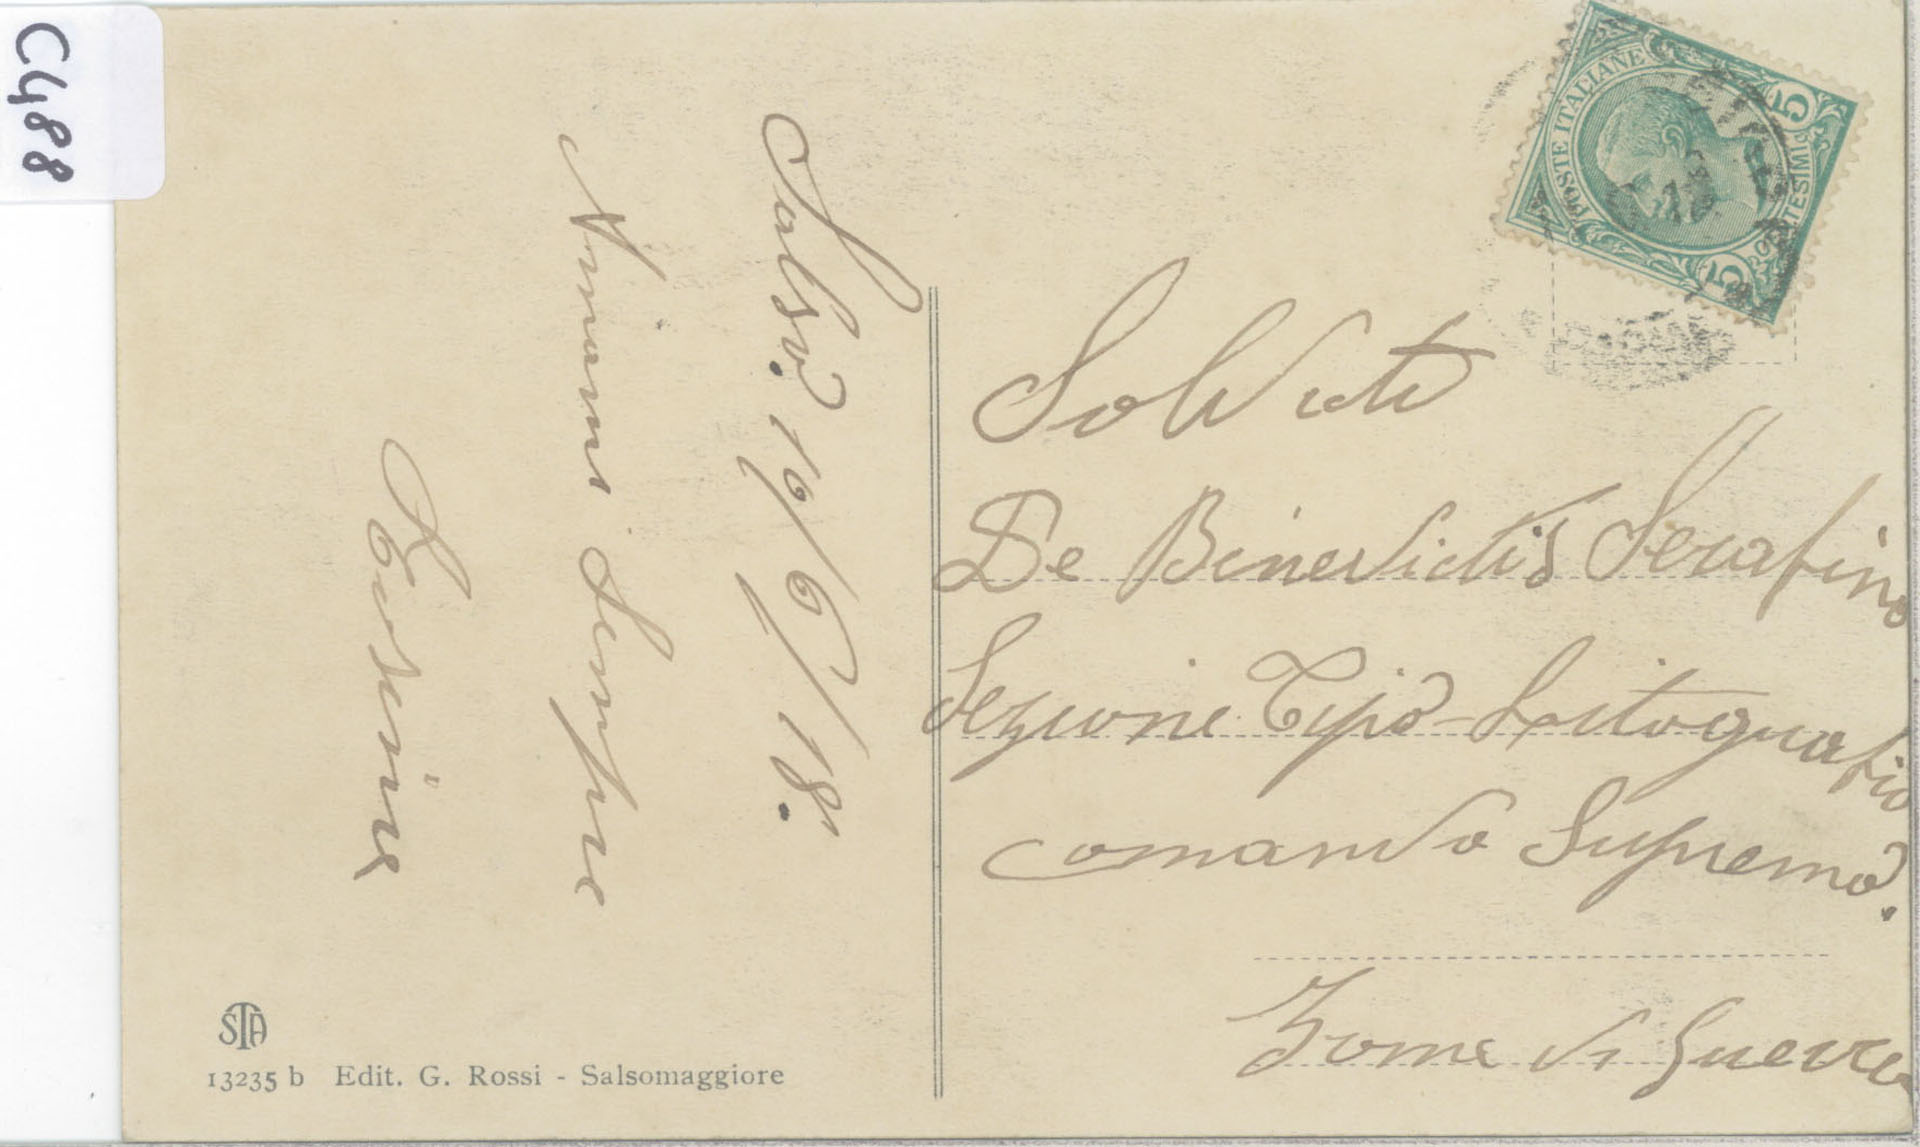 C488
POSTE ITALIANE
CENTESIMI
5
5
Salso. 19/6/18.
Sempre
Soldato
De Benedictis Serafino
Sezione Tipo-Litografio
comando Supremo.
Zone di Guerra
STA
13235 b Edit. G. Rossi - Salsomaggiore